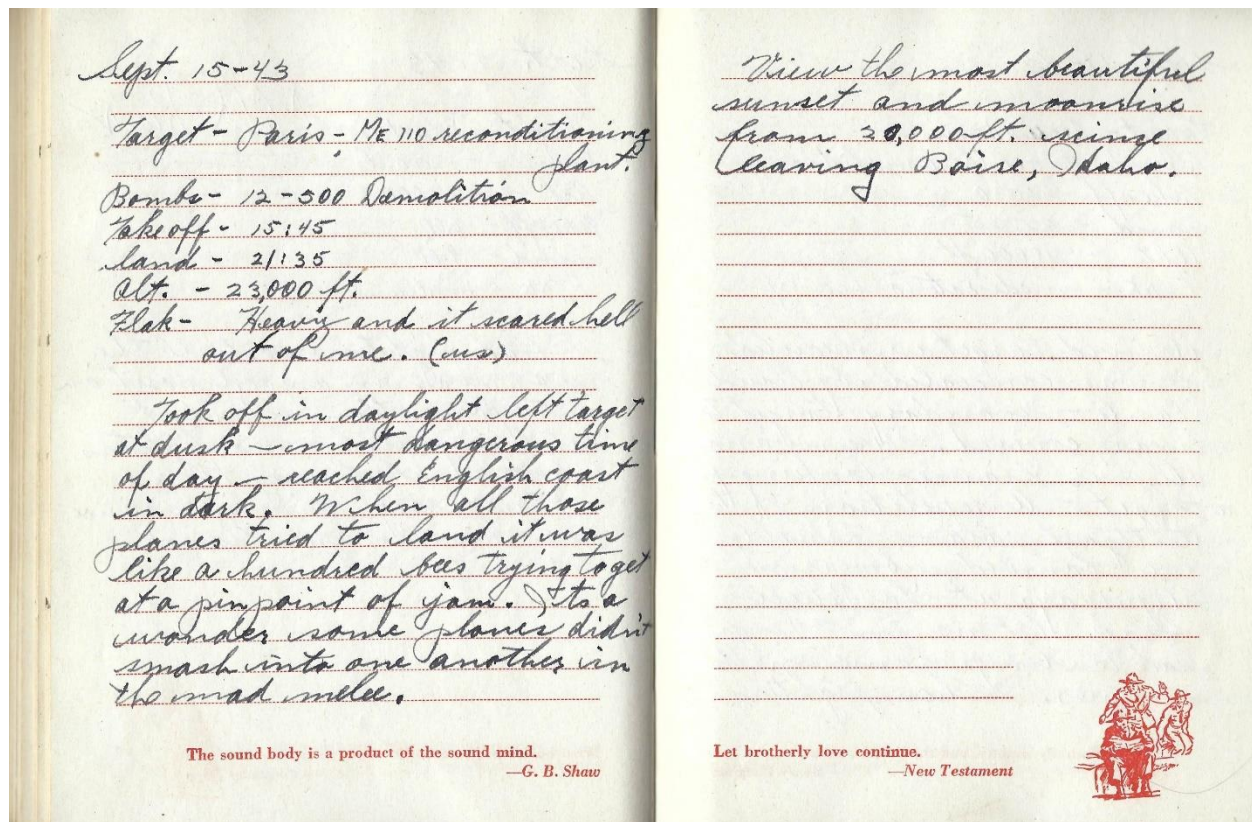 Sept. 15-43
Target - Paris - ME 110 reconditioning
plant.
Bombs - 12-500 Demolition
Takeoff - 15:45
land - 21:35
Alt. - 23,000 ft.
Flak - Heavy and it scared hell
out of me. (us)
Took off in daylight left target
at dusk - most dangerous time
of day - reached English coast
in dark. When all those
planes tried to land it was
like a hundred bees trying to get
at a pin point of jam. Its a
wonder some planes didn't
smash into one another in
the mad melee.
The sound body is a product of the sound mind.
—G. B. Shaw
View the most beautiful
sunset and moonrise
from 20,000 ft. seinse
leaving Boise, Idaho.
Let brotherly love continue.
—New Testament